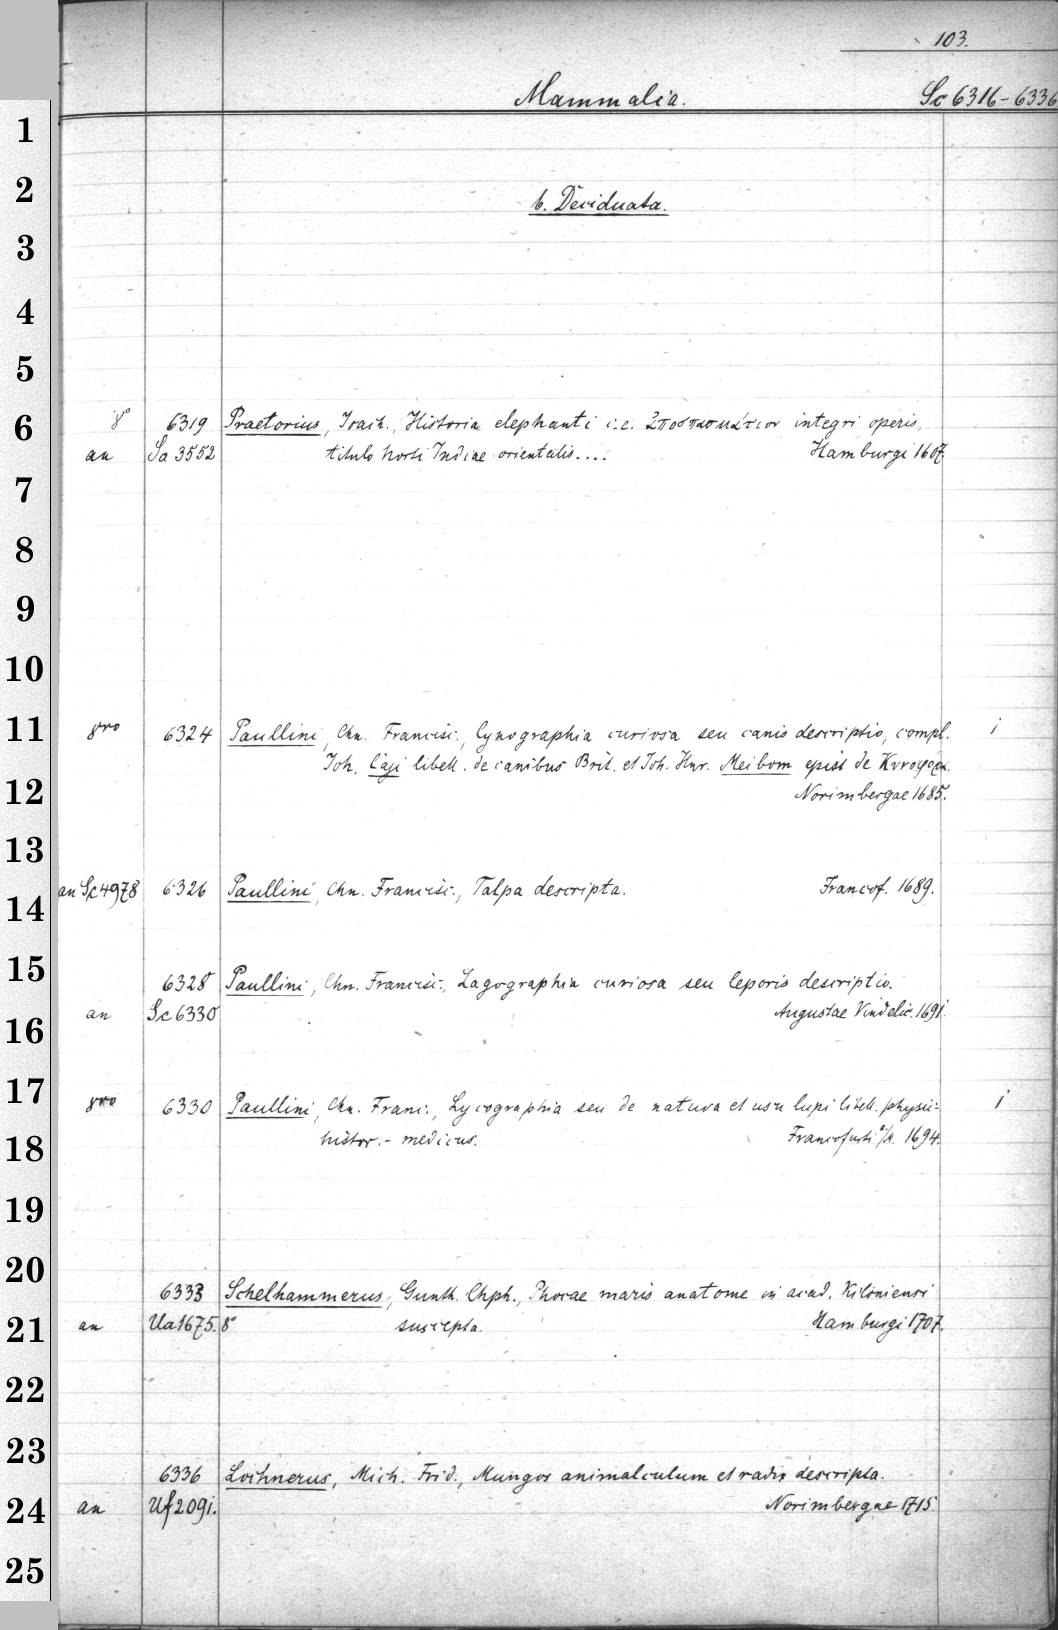 103.
Mammalia. Sc 6316-6336
1
2
b. Deciduata.
3
4
5
6
8° 6319 Praetorius, Joach., Historia elephanti i.e. integri operis,
an Sa 3552 titulo horti Indiae orientalis.... Hamburgi 1607
7
8
9
10
11
8vo 6324 Paullini, Chn. Francisc., Cynographia curiosa seu canis descriptio, compl. i
Joh. Caji libell. de canibus Brit. et Joh. Hnr. Meibom epist de
12
Norimbergae 1685.
13
an Sc 4978 6326 Paullini, Chn. Francisc., Talpa descripta. Francof. 1689.
14
15
6328 Paullini, Chn. Francisc., Lagographia curiosa seu leporis descriptio.
an Sc 6330 Augustae Vindelic. 1691.
16
17
8vo 6330 Paullini, Chn. Franc., Lycographia seu de natura et usu lupi libell. physic- i
histor.- medicus. Francofurti a/M. 1694.
18
19
20
6333 Schelhammerus, Gunth. Chph., Phocae maris anatome in acad. Kiloniensi
an Ua 1675. 8° suscepta. Hamburgi 1707.
21
22
23
6336 Lochnerus, Mich. Frid., Mungos animalculum et radix descripta.
an Uf 209i. Norimbergae 1715.
24
25